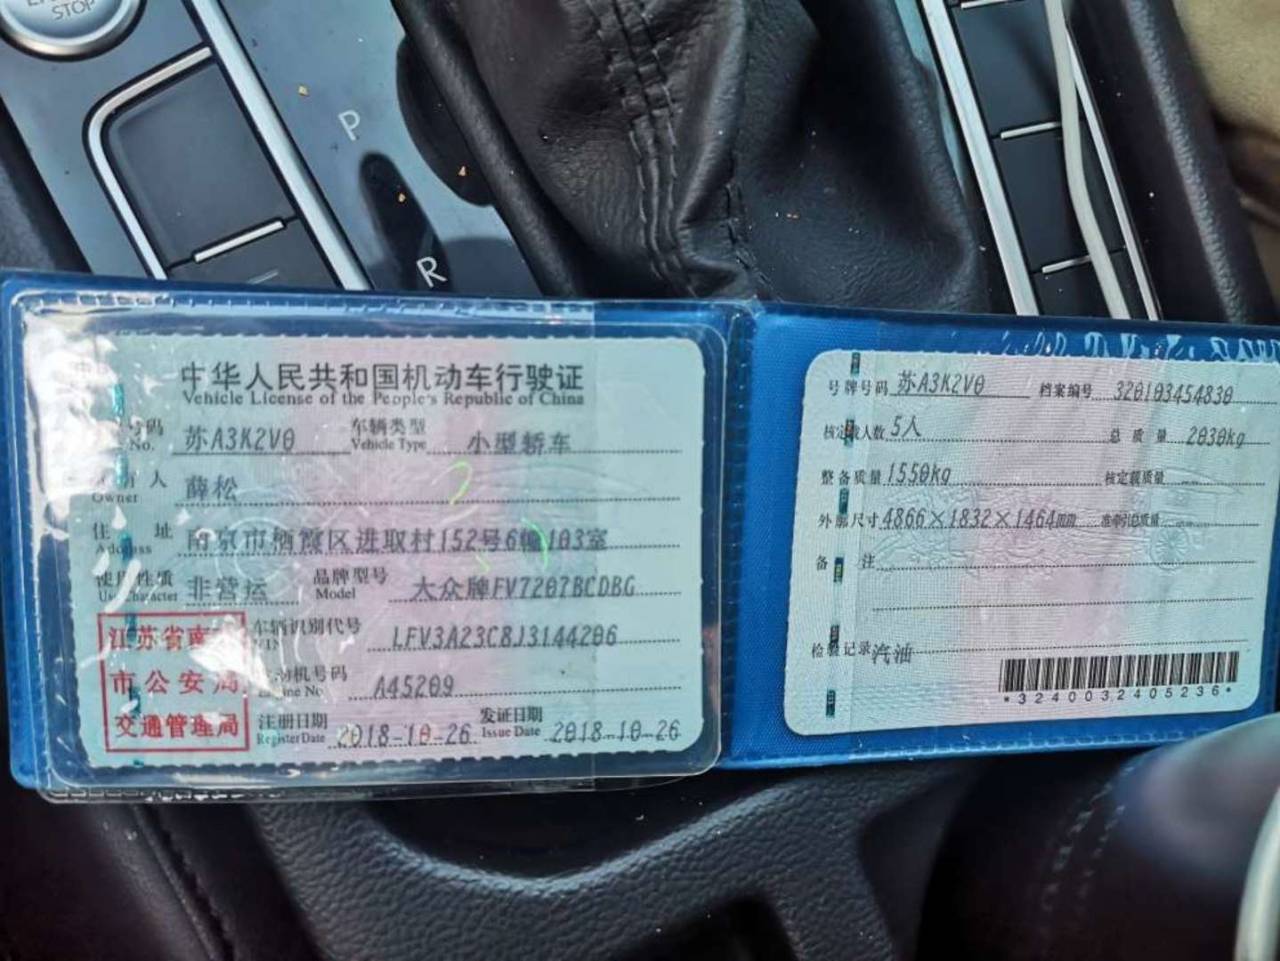 STOP
P
R
中华人民共和国机动车行驶证
Vehicle License of the People's Republic of China
号码 苏A3K2V0 车辆类型 小型轿车
No. Vehicle Type
人 薛松
Owner
住 址 南京市栖霞区进取村152号6幢103室
Address
使用性质 非营运 品牌型号 大众牌FV7207BCDBG
Use Character Model
车辆识别代号 LFV3A23C8J3144206
VIN
江苏省南
市公安局
交通管理局
机号码 A45209
Engine No.
注册日期 2018-10-26 发证日期 2018-10-26
Register Date Issue Date
号牌号码 苏A3K2V0 档案编号 320103454830
核定载人数 5人 总质量 2030kg
整备质量 1550kg 核定载质量 --
外廓尺寸 4866×1832×1464mm 准牵引总质量 --
备 注
检验记录 汽油
*3240032405236*